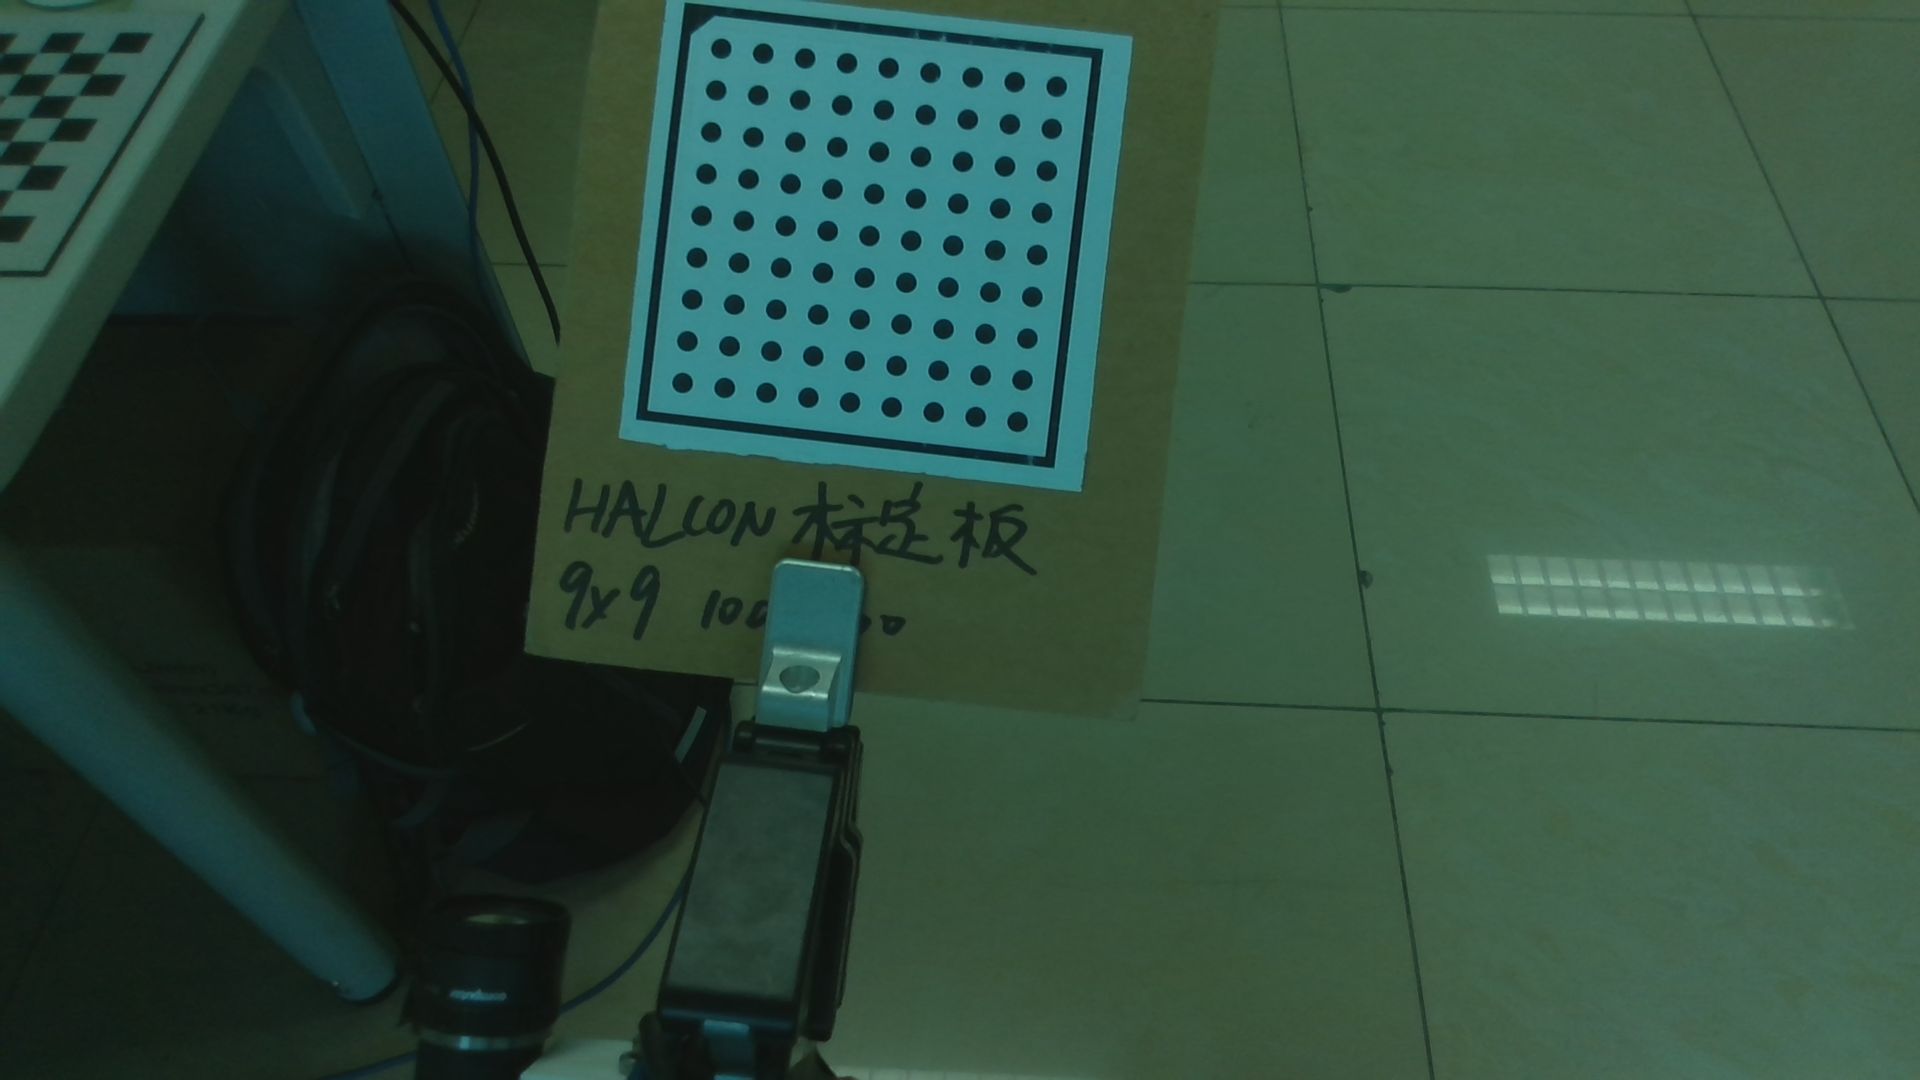 HALCON 标定板
9x9 100